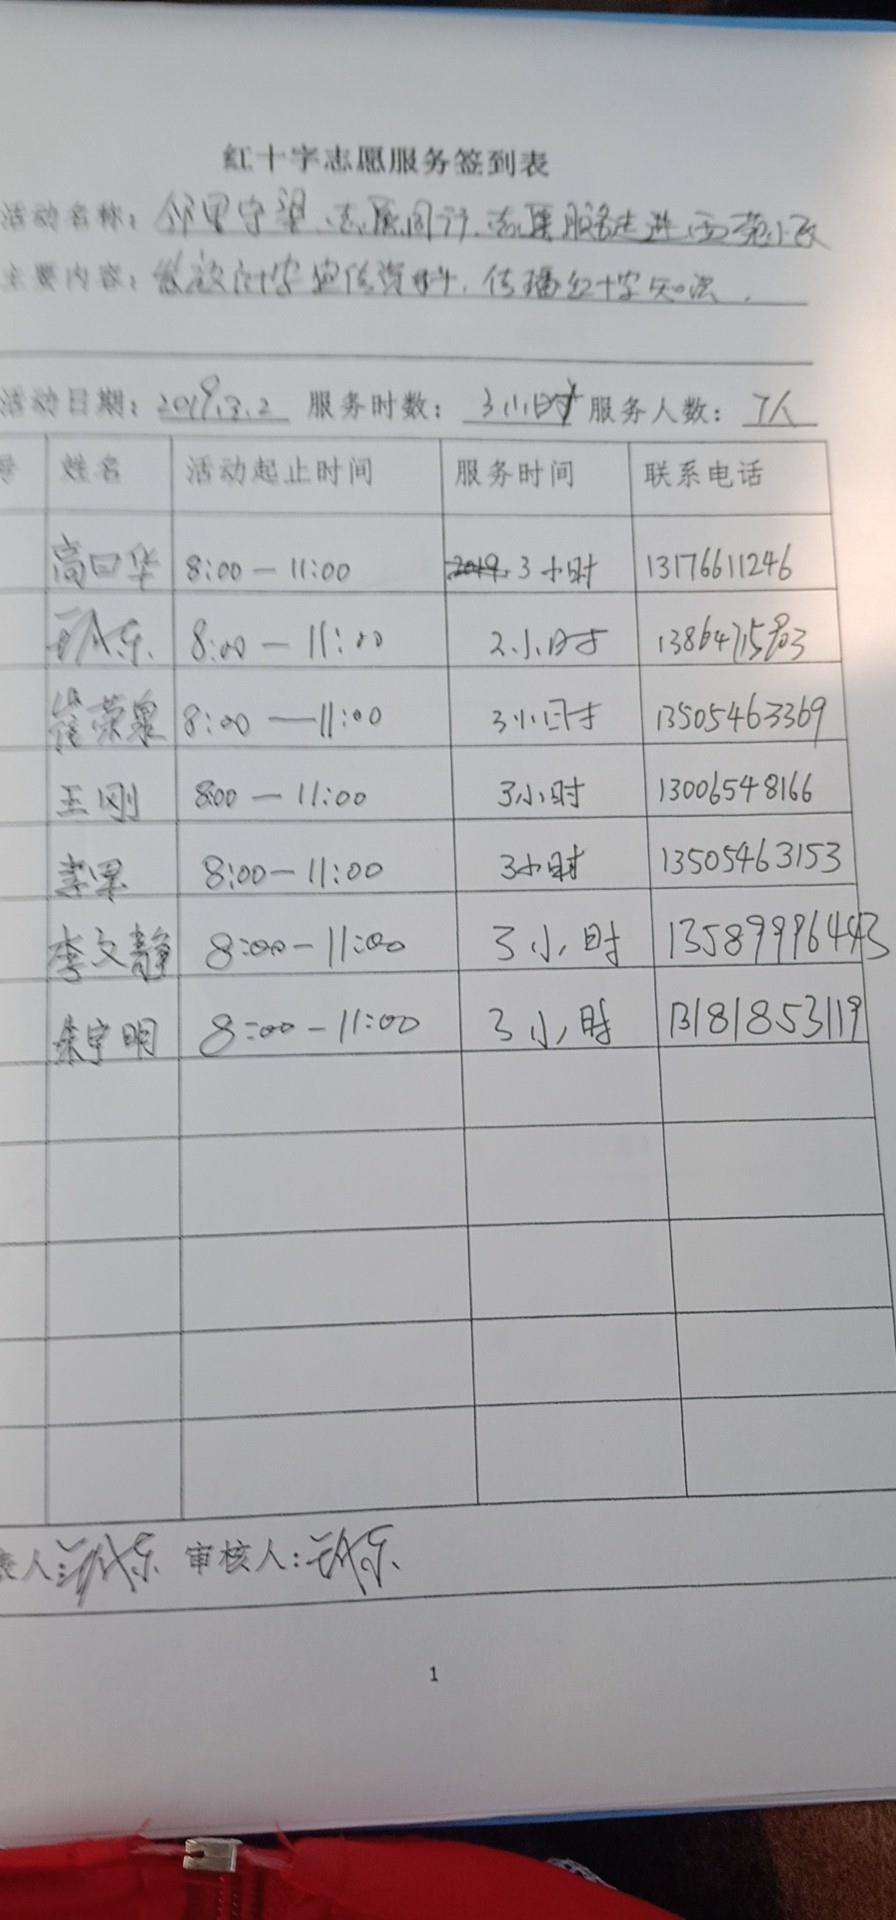 红十字志愿服务签到表
活动名称：邻里守望.志愿同行.志愿服务走进西苑小区
主要内容：发放红十字宣传资料，传播红十字知识.
活动日期：2019.3.2 服务时数：3小时 服务人数：7人
号 姓名 活动起止时间 服务时间 联系电话
高曰华 8:00—11:00 3小时 13176611246
8:00—11:00 2小时
崔荣泉 8:00—11:00 3小时 13505463369
王刚 8:00—11:00 3小时 13006548166
李果 8:00—11:00 3小时 13505463153
李文静 8:00—11:00 3小时 13589996443
朱宇明 8:00—11:00 3小时 13181853119
表人： 审核人：
1